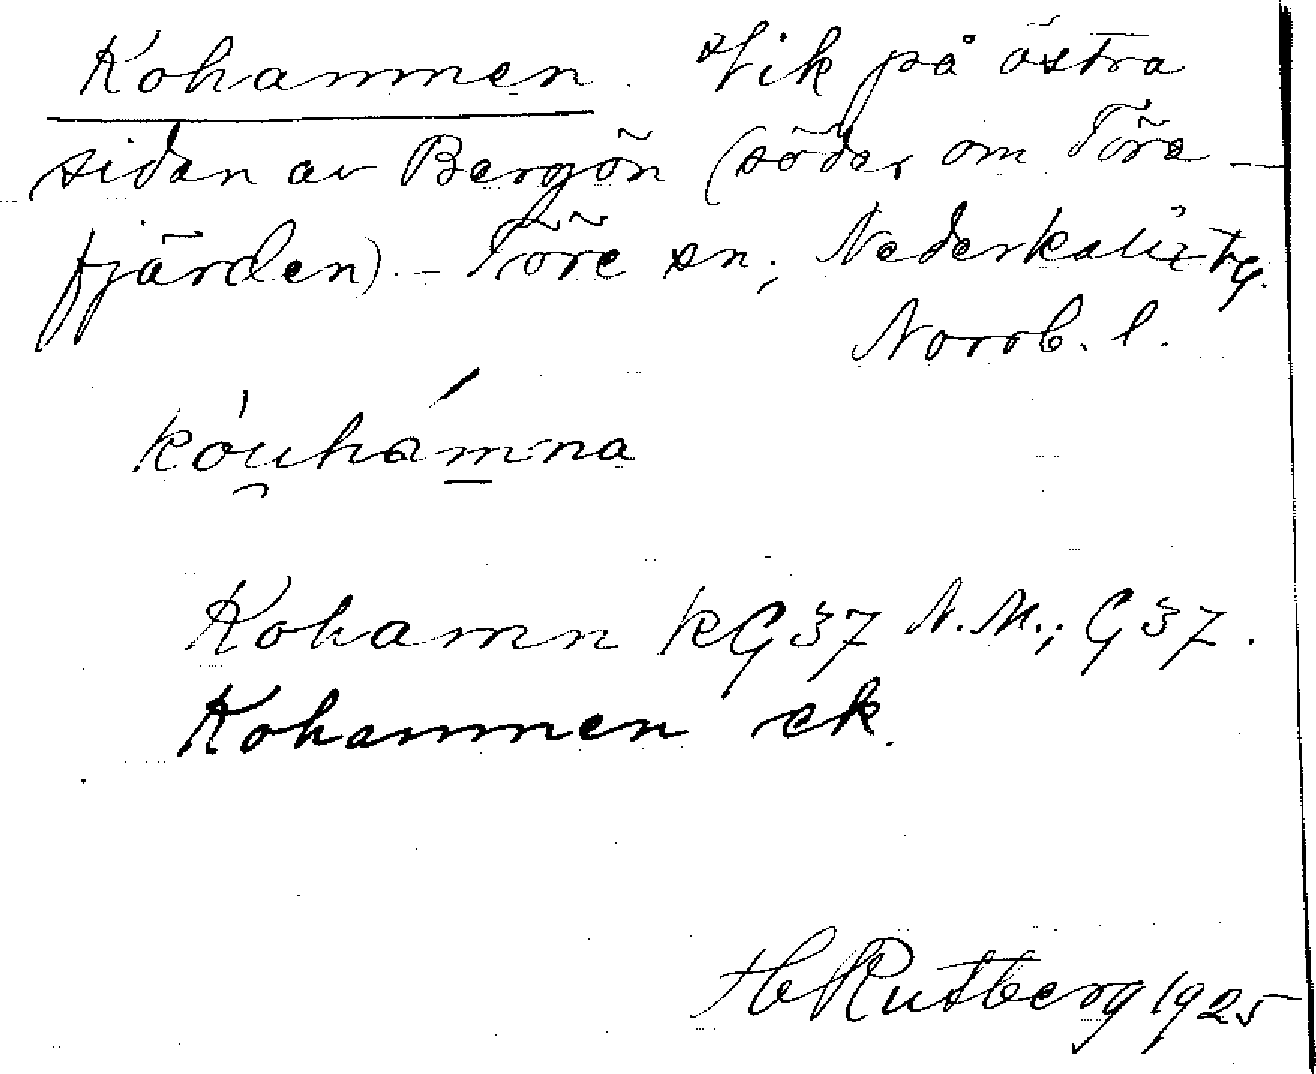 Kohamnen. Vik på östra
sidan av Bergön (söder om Töre-
fjärden). – Töre sn; Nederkalix tg.
Norrb. l.
kóu̯hám̲na
Kohamn kG37 N.M.; G37.
Kohamnen ek.
H Rutberg 1925